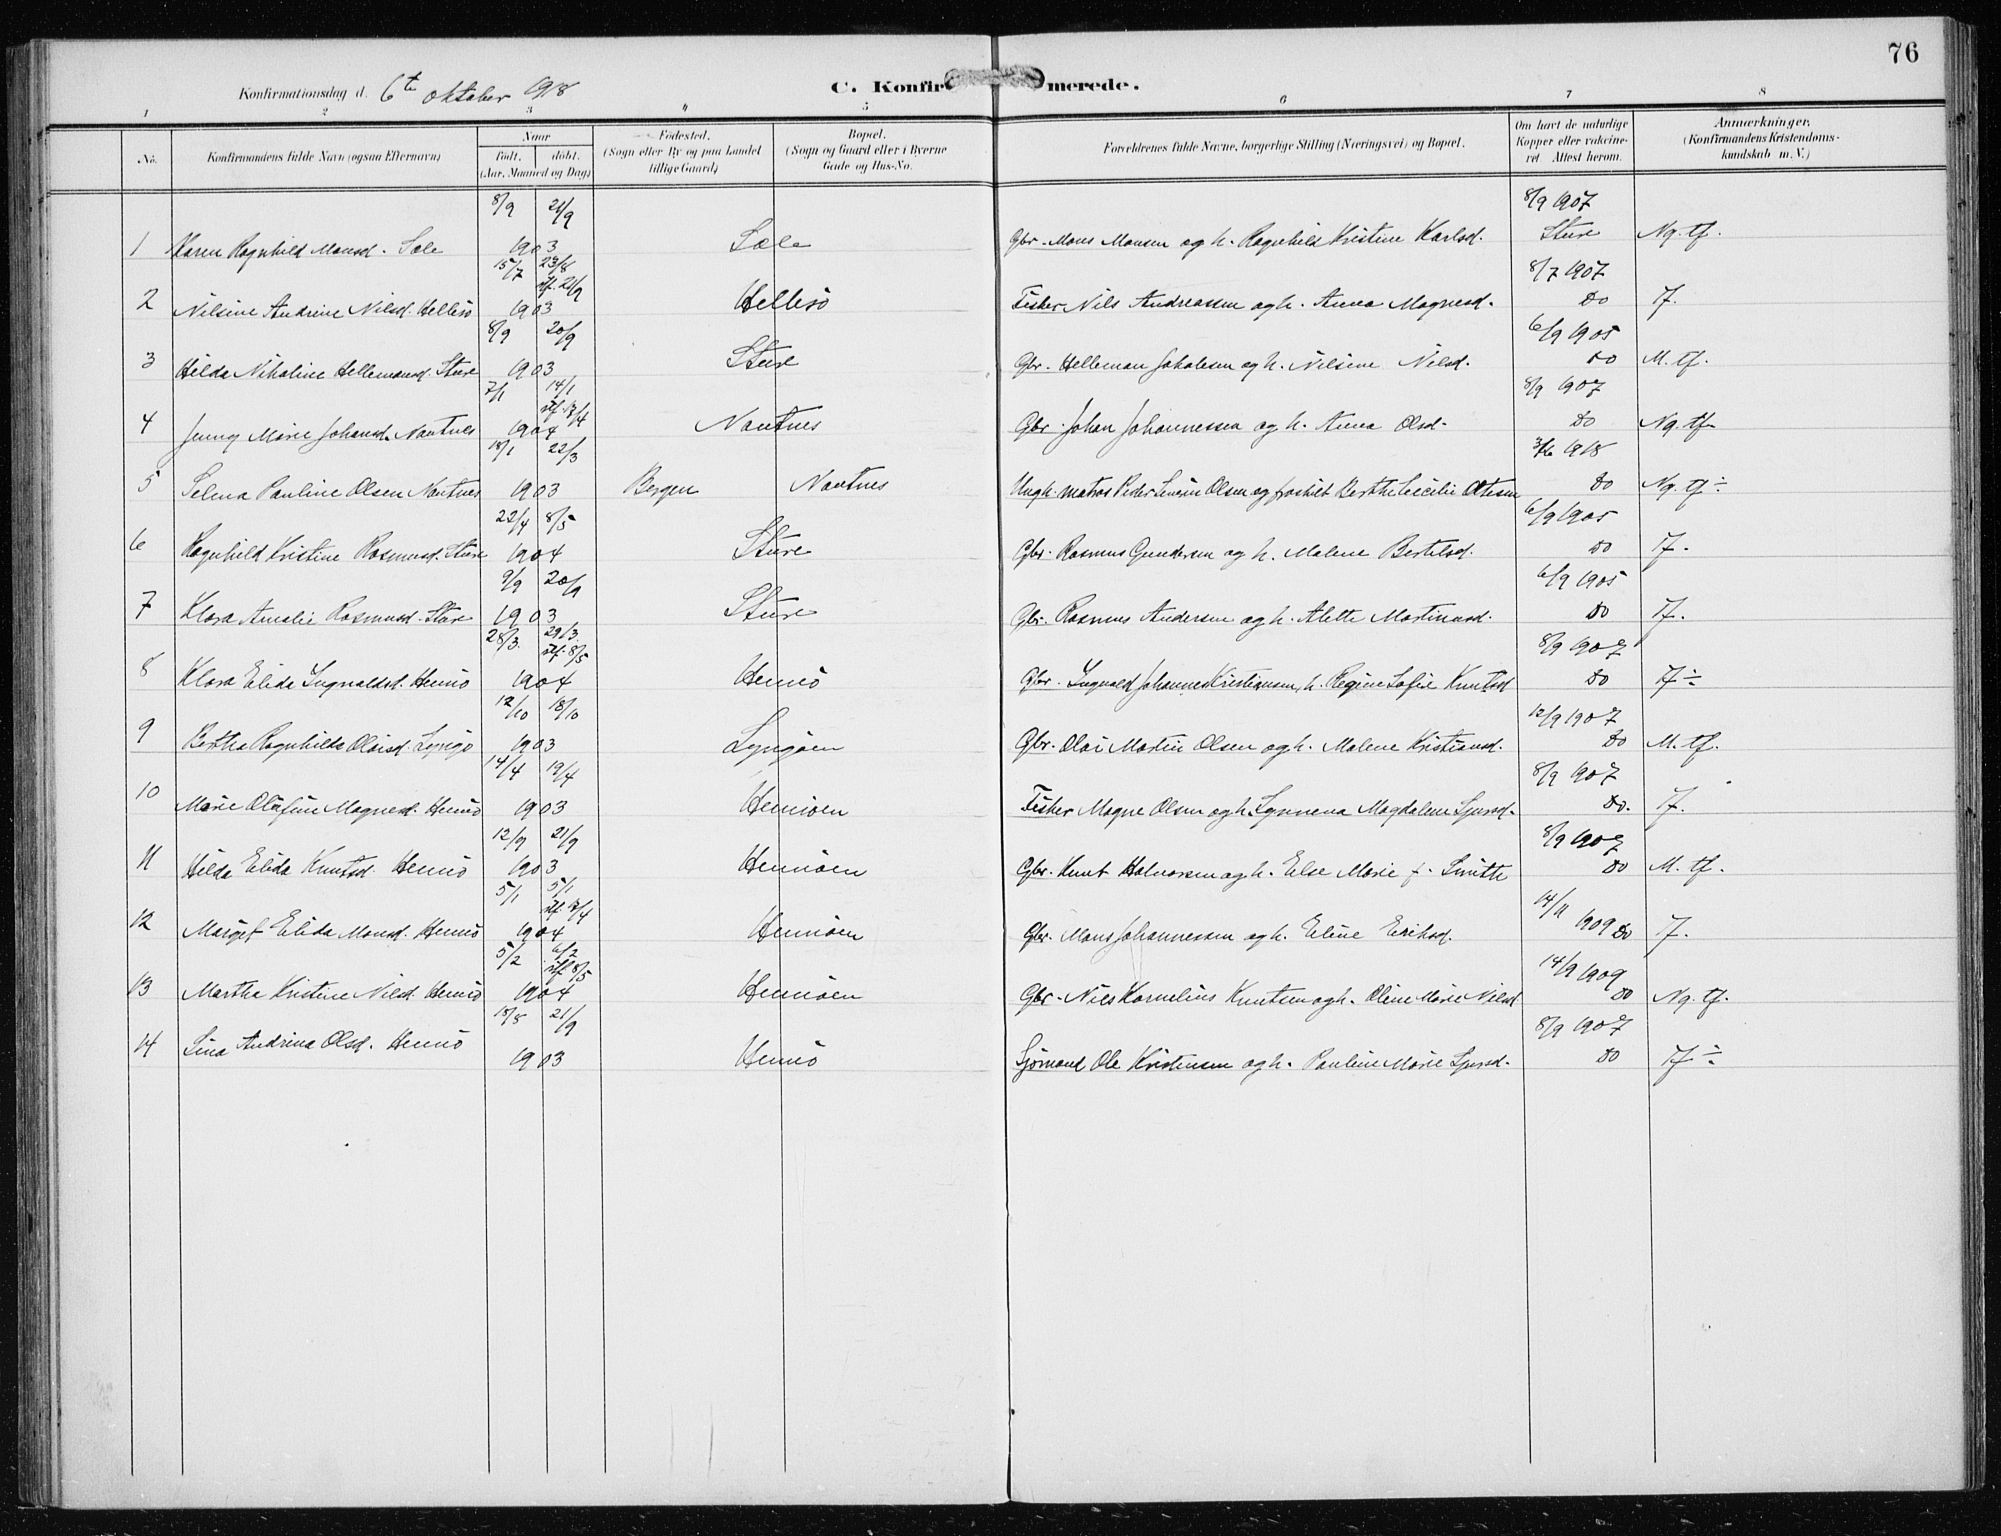 76
Konfirmationsdag d. 6te oktober 1918
C. Konfirmerede.
1 2 3 4 5 6 7 8
No.
Konfirmandens fulde Navn (ogsaa Efternavn)
Naar
født. døbt.
(Aar, Maaned og Dag)
Fødested.
(Sogn eller By og paa Landet
tillige Gaard)
Bopæl.
(Sogn og Gaard eller i Byerne
Gade og Hus-No.
Forældrenes fulde Navne, borgerlige Stilling (Næringsvei) og Bopæl.
Om havt de naturlige
Kopper eller vakcine-
ret. Attest herom.
Anmærkninger.
(Konfirmandens Kristendoms-
kundskab m. V.)
8/9 21/9 8/9 1907
1 Karen Ragnhild Monsd. Sæle 1903 Sæle Gbr. Mons Monsen og h. Ragnhild Kristine Karlsd. Sture Ng. tf.
15/7 23/8 stf. 21/9 8/7 1907
2 Nilsine Andrine Nilsd. Hellesö 1903 Hellesö Fisker Nils Andreassen og h. Anna Magnesd. Do Tf.
8/9 20/9 6/9 1905
3 Hilda Nikoline Hellemansd. Sture 1903 Sture Gbr. Helleman Jakobsen og h. Nilsine Nilsd. Do M. tf.
7/1 14/1 8/9 1907
4 Jenny Marie Johansd. Nautnes 1904 Nautnes Gbr. Johan Johannessen og h. Anna Olsd. Do Ng. tf.
18/1 22/3 1918
5 Selma Pauline Olsen Nautnes 1903 Bergen Nautnes Ungk. matros Peder Olsen og Berthe Cecilie Do Ng. tf ÷
22/4 8/5 6/9 1905
6 Ragnhild Kristine Rasmusd. Sture 1904 Sture Gbr. Rasmus Gundersen og h. Malene Bertelsd. Do Tf.
9/9 20/9 6/9 1905
7 Klara Amalie Rasmusd. Sture 1903 Sture Gbr. Rasmus Andersen og h. Alette Martinusd. Do Tf.
28/3. 29/3. stf. 8/5 8/9 1907
8 Klara Elida Ingvaldsd. Hennö 1904 Hennö Gbr. Ingvald Johannes Kristiansen, h. Regine Sofie Knutsd Do Tf ÷
12/10 18/10 12/9 1907
9 Bertha Ragnhilda Olaisd. Lyngö 1903 Lyngöen Gbr. Olai Martin Olsen og h. Malene Kristiansd. Do M. tf.
14/4 19/4 8/9 1907
10 Marie Olufine Magnesd. Hennö 1903 Hennöen Fisker Magne Olsen og h. Magdalene Sjursd. Do. Tf.
12/9 21/9 8/9 1907
11 Hilda Elida Knutsd. Hennö 1903 Hennöen Gbr. Knut Halvorsen og h. Else Marie f. Smith Do M. tf.
5/1 5/1 14/11
12 Marget Elida Monsd. Hennö 1904 Hennöen Gbr. Mons Johannessen og h. Eline Eriksd. 1909 Do Tf.
5/2 6/2 stf 8/5 14/9 1909
13 Martha Kristine Nilsd. Hennö 1904 Hennöen Gbr. Nils Kornelius Knutsen og h. Oline Marie Nilsd Do Ng. tf.
18/8 21/9 8/9 1907
14 Lina Andrina Olsd. Hennö 1903 Hennö Sjömand Ole Kristensen og h. Pauline Marie Sjursd. Do Tf ÷